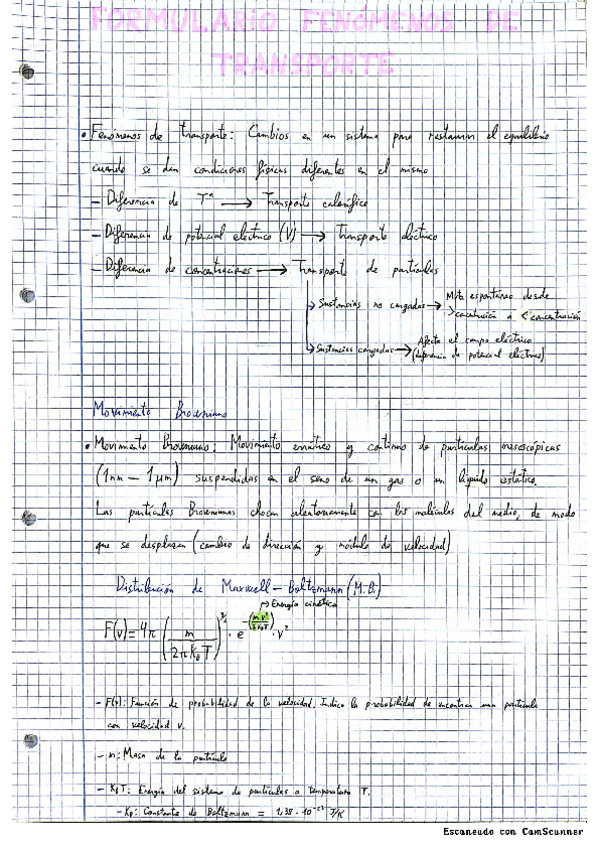 FORMULARIO FENÓMENOS DE
TRANSPORTE
• Fenómenos de transporte: Cambios en un sistema para restaurar el equilibrio
cuando se dan condiciones físicas diferentes en el mismo
- Diferencia de Tª → Transporte calorífico
- Diferencia de potencial eléctrico (V) → Transporte eléctrico
- Diferencia de concentraciones → Transporte de partículas
↳ Sustancias no cargadas → espontánea desde
> concentración a < concentración
↳ Sustancias cargadas → Afecta el campo eléctrico
(diferencia de potencial eléctrico)
Movimiento Browniano
• Movimiento Browniano: Movimiento errático y continuo de partículas mesoscópicas
(1nm - 1μm) suspendidas en el seno de un gas o un líquido estático.
Las partículas Brownianas chocan aleatoriamente con las moléculas del medio, de modo
que se desplazan (cambio de dirección y módulo de velocidad)
Distribución de Maxwell-Boltzmann (M.B.)
→ Energía cinética
F(v) = 4π (m / 2πK_BT)^3/2 · e^-(mv²/2K_BT) · v²
- F(v): Función de probabilidad de la velocidad. Indica la probabilidad de encontrar una partícula
con velocidad v.
- m: Masa de la partícula
- K_BT: Energía del sistema de partículas a temperatura T.
- K_B: Constante de Boltzmann = 1,38 · 10^-23 J/K
Escaneado con CamScanner